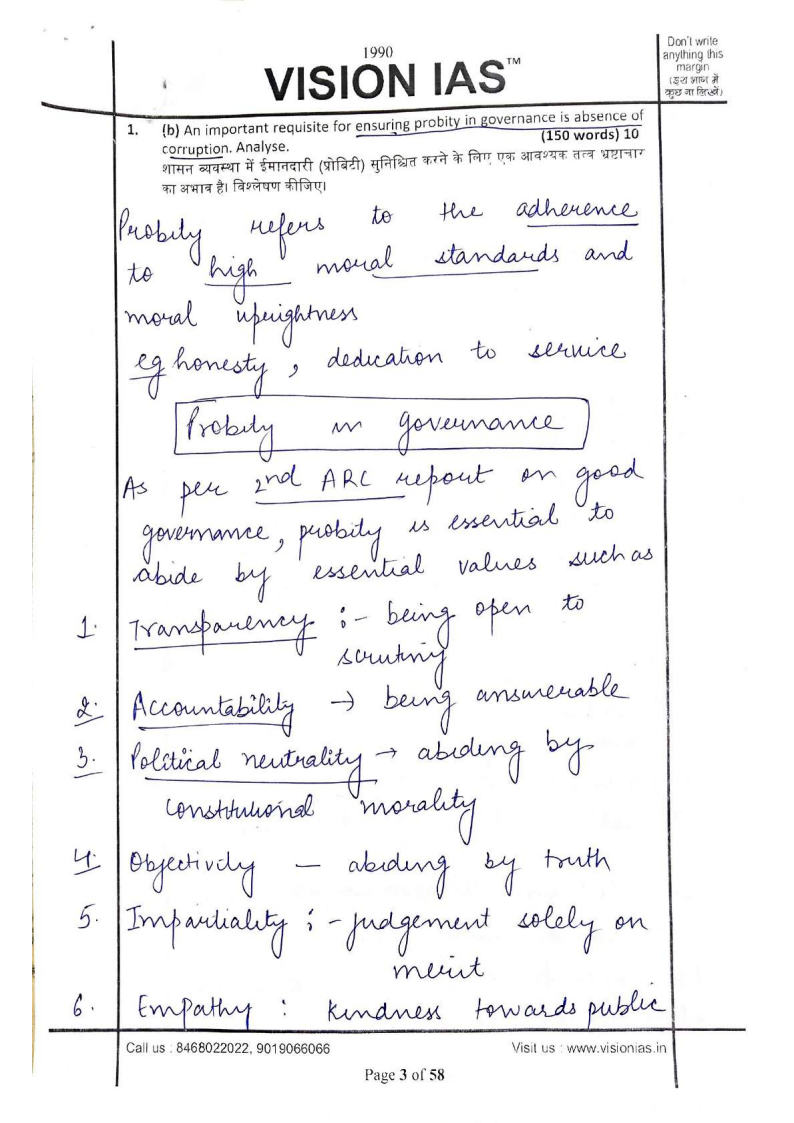 1990
VISION IAS™
Don't write
anything this
margin
(इस भाग में
कुछ ना लिखें)
1. (b) An important requisite for ensuring probity in governance is absence of
corruption. Analyse. (150 words) 10
शासन व्यवस्था में ईमानदारी (प्रोबिटी) सुनिश्चित करने के लिए एक आवश्यक तत्व भ्रष्टाचार
का अभाव है। विश्लेषण कीजिए।
Probity refers to the adherence
to high moral standards and
moral uprightness
eg honesty, dedication to service
Probity in governance
As per 2nd ARC report on good
governance, probity is essential to
abide by essential values such as
1. Transparency :- being open to
scrutiny
2. Accountability → being answerable
3. Political neutrality → abiding by
constitutional morality
4. Objectivity — abiding by truth
5. Impartiality :- judgement solely on
merit
6. Empathy : kindness towards public
Call us : 8468022022, 9019066066 Visit us : www.visionias.in
Page 3 of 58